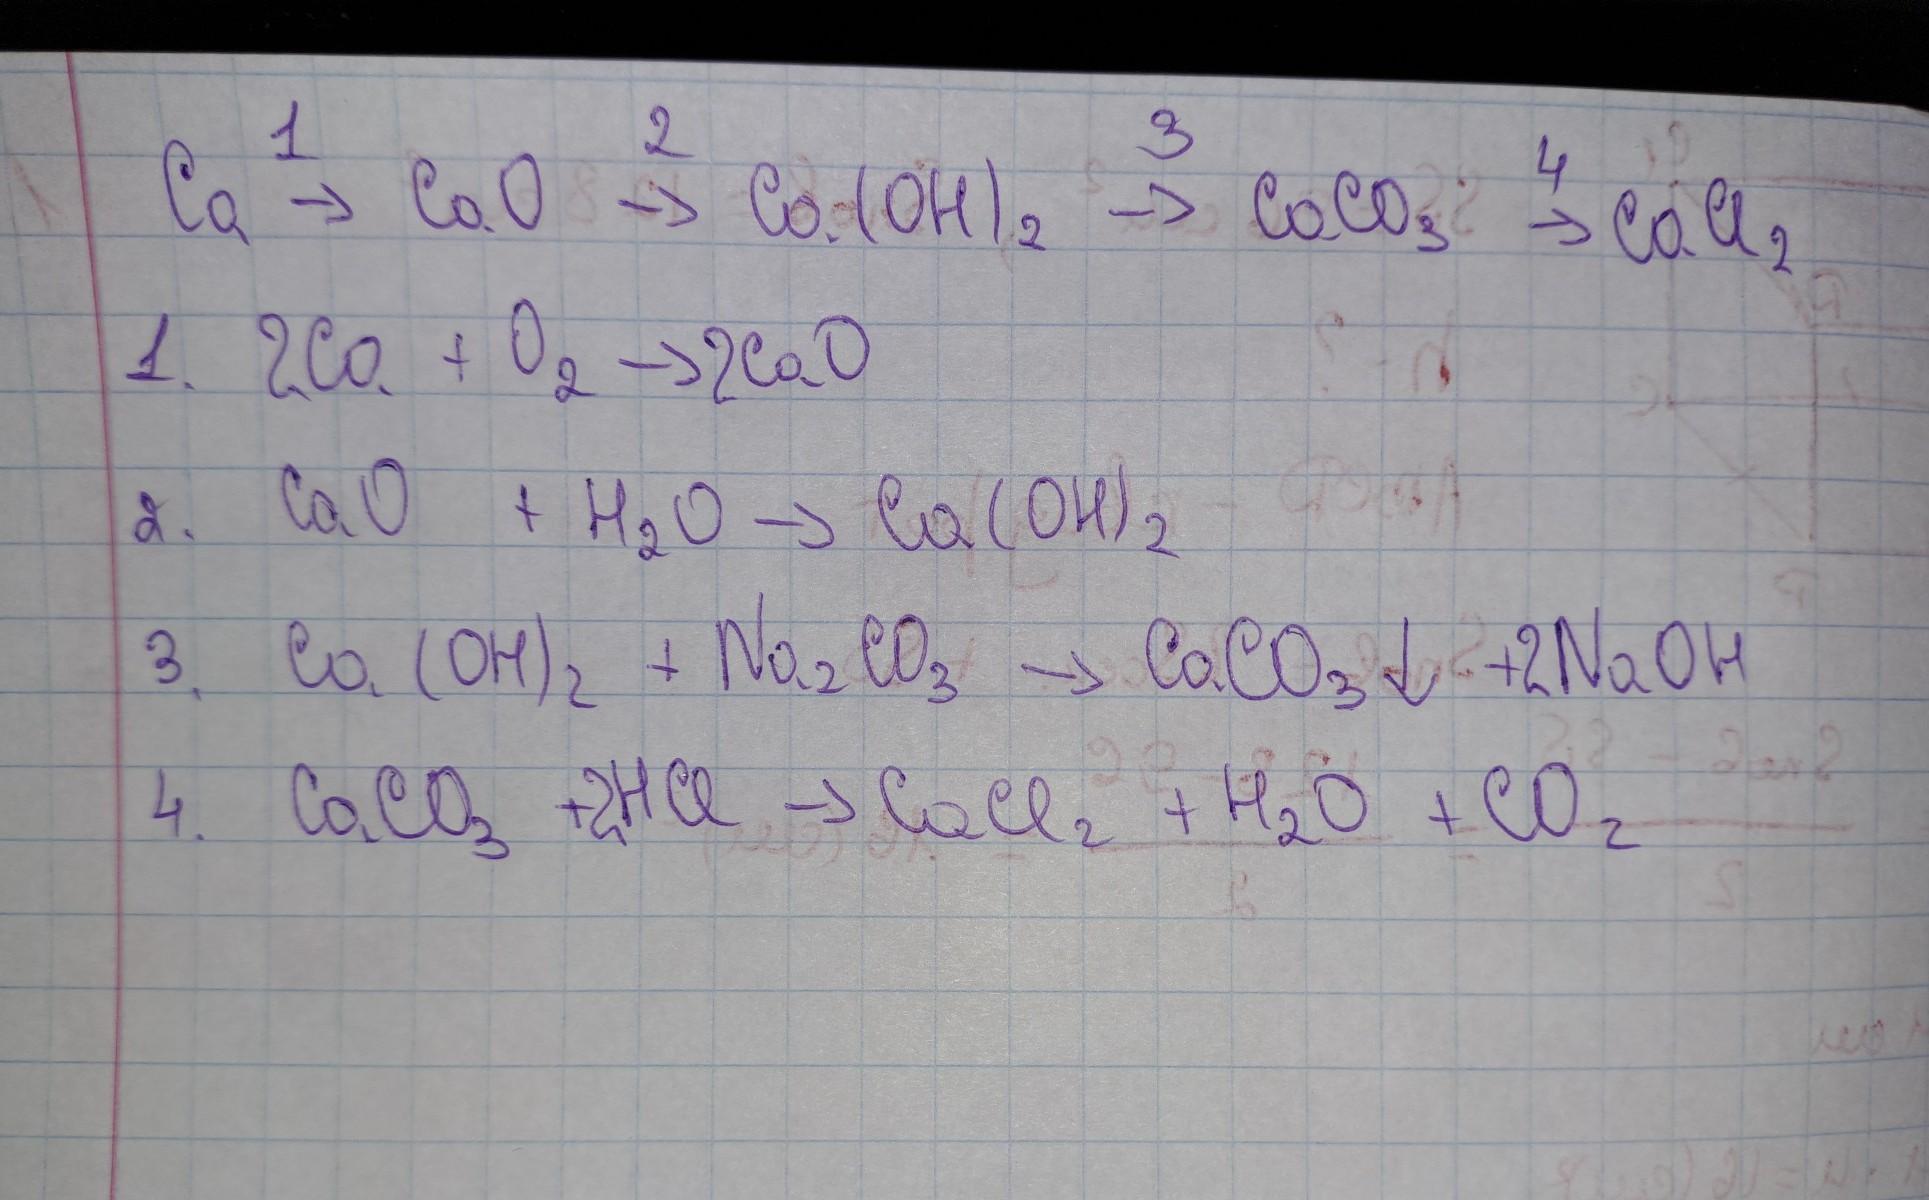 Ca 1→ CaO 2→ Ca(OH)₂ 3→ CaCO₃ 4→ CaCl₂
1. 2Ca + O₂ → 2CaO
2. CaO + H₂O → Ca(OH)₂
3. Ca(OH)₂ + Na₂CO₃ → CaCO₃↓ + 2NaOH
4. CaCO₃ + 2HCl → CaCl₂ + H₂O + CO₂